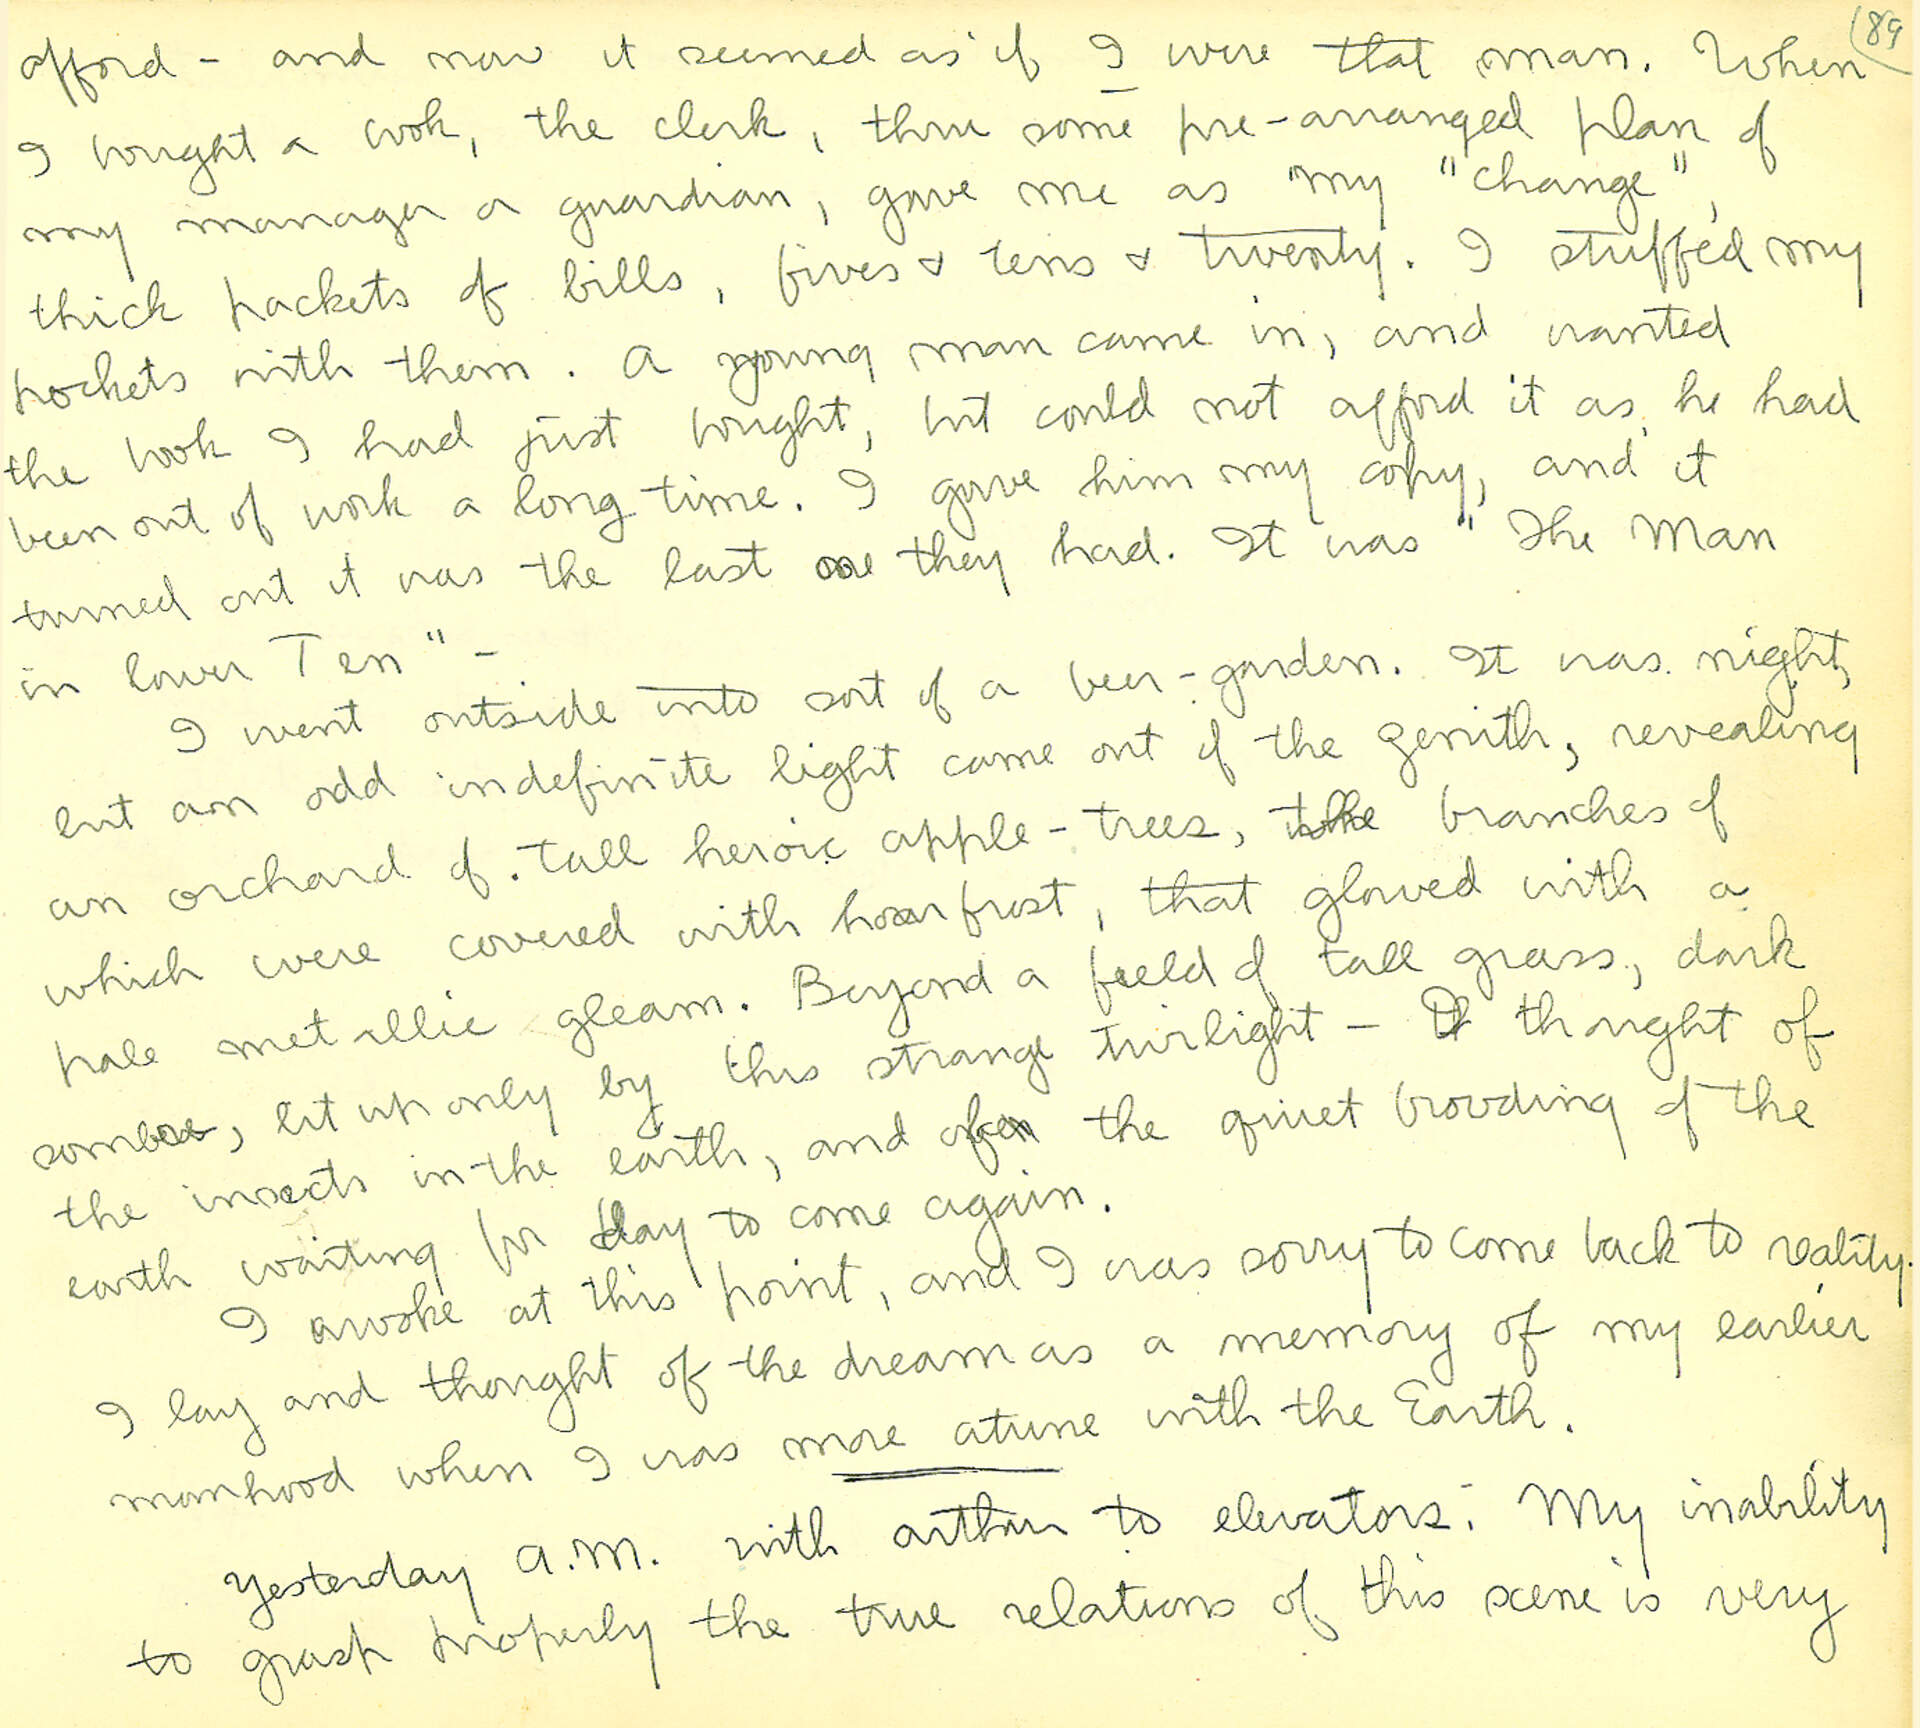 89
afford – and now it seemed as if I were that man. When
I bought a book, the clerk, thru some pre-arranged plan of
my manager or guardian, gave me as my "change",
thick packets of bills, fives & tens & twenty. I stuffed my
pockets with them. A young man came in, and wanted
the book I had just bought, but could not afford it as he had
been out of work a long time. I gave him my copy, and it
turned out it was the last one they had. It was "The Man
in lower Ten" –
I went outside into sort of a beer-garden. It was night,
but an odd indefinite light came out of the zenith, revealing
an orchard of tall heroic apple-trees, the branches of
which were covered with hoarfrost, that glowed with a
pale metallic gleam. Beyond a field of tall grass, dark
sombre, lit up only by this strange twilight – I thought of
the insects in the earth, and of the quiet brooding of the
earth waiting for day to come again.
I awoke at this point, and I was sorry to come back to reality.
I lay and thought of the dream as a memory of my earlier
manhood when I was more atune with the Earth.
Yesterday A.M. with Arthur to elevators: My inability
to grasp properly the true relations of this scene is very